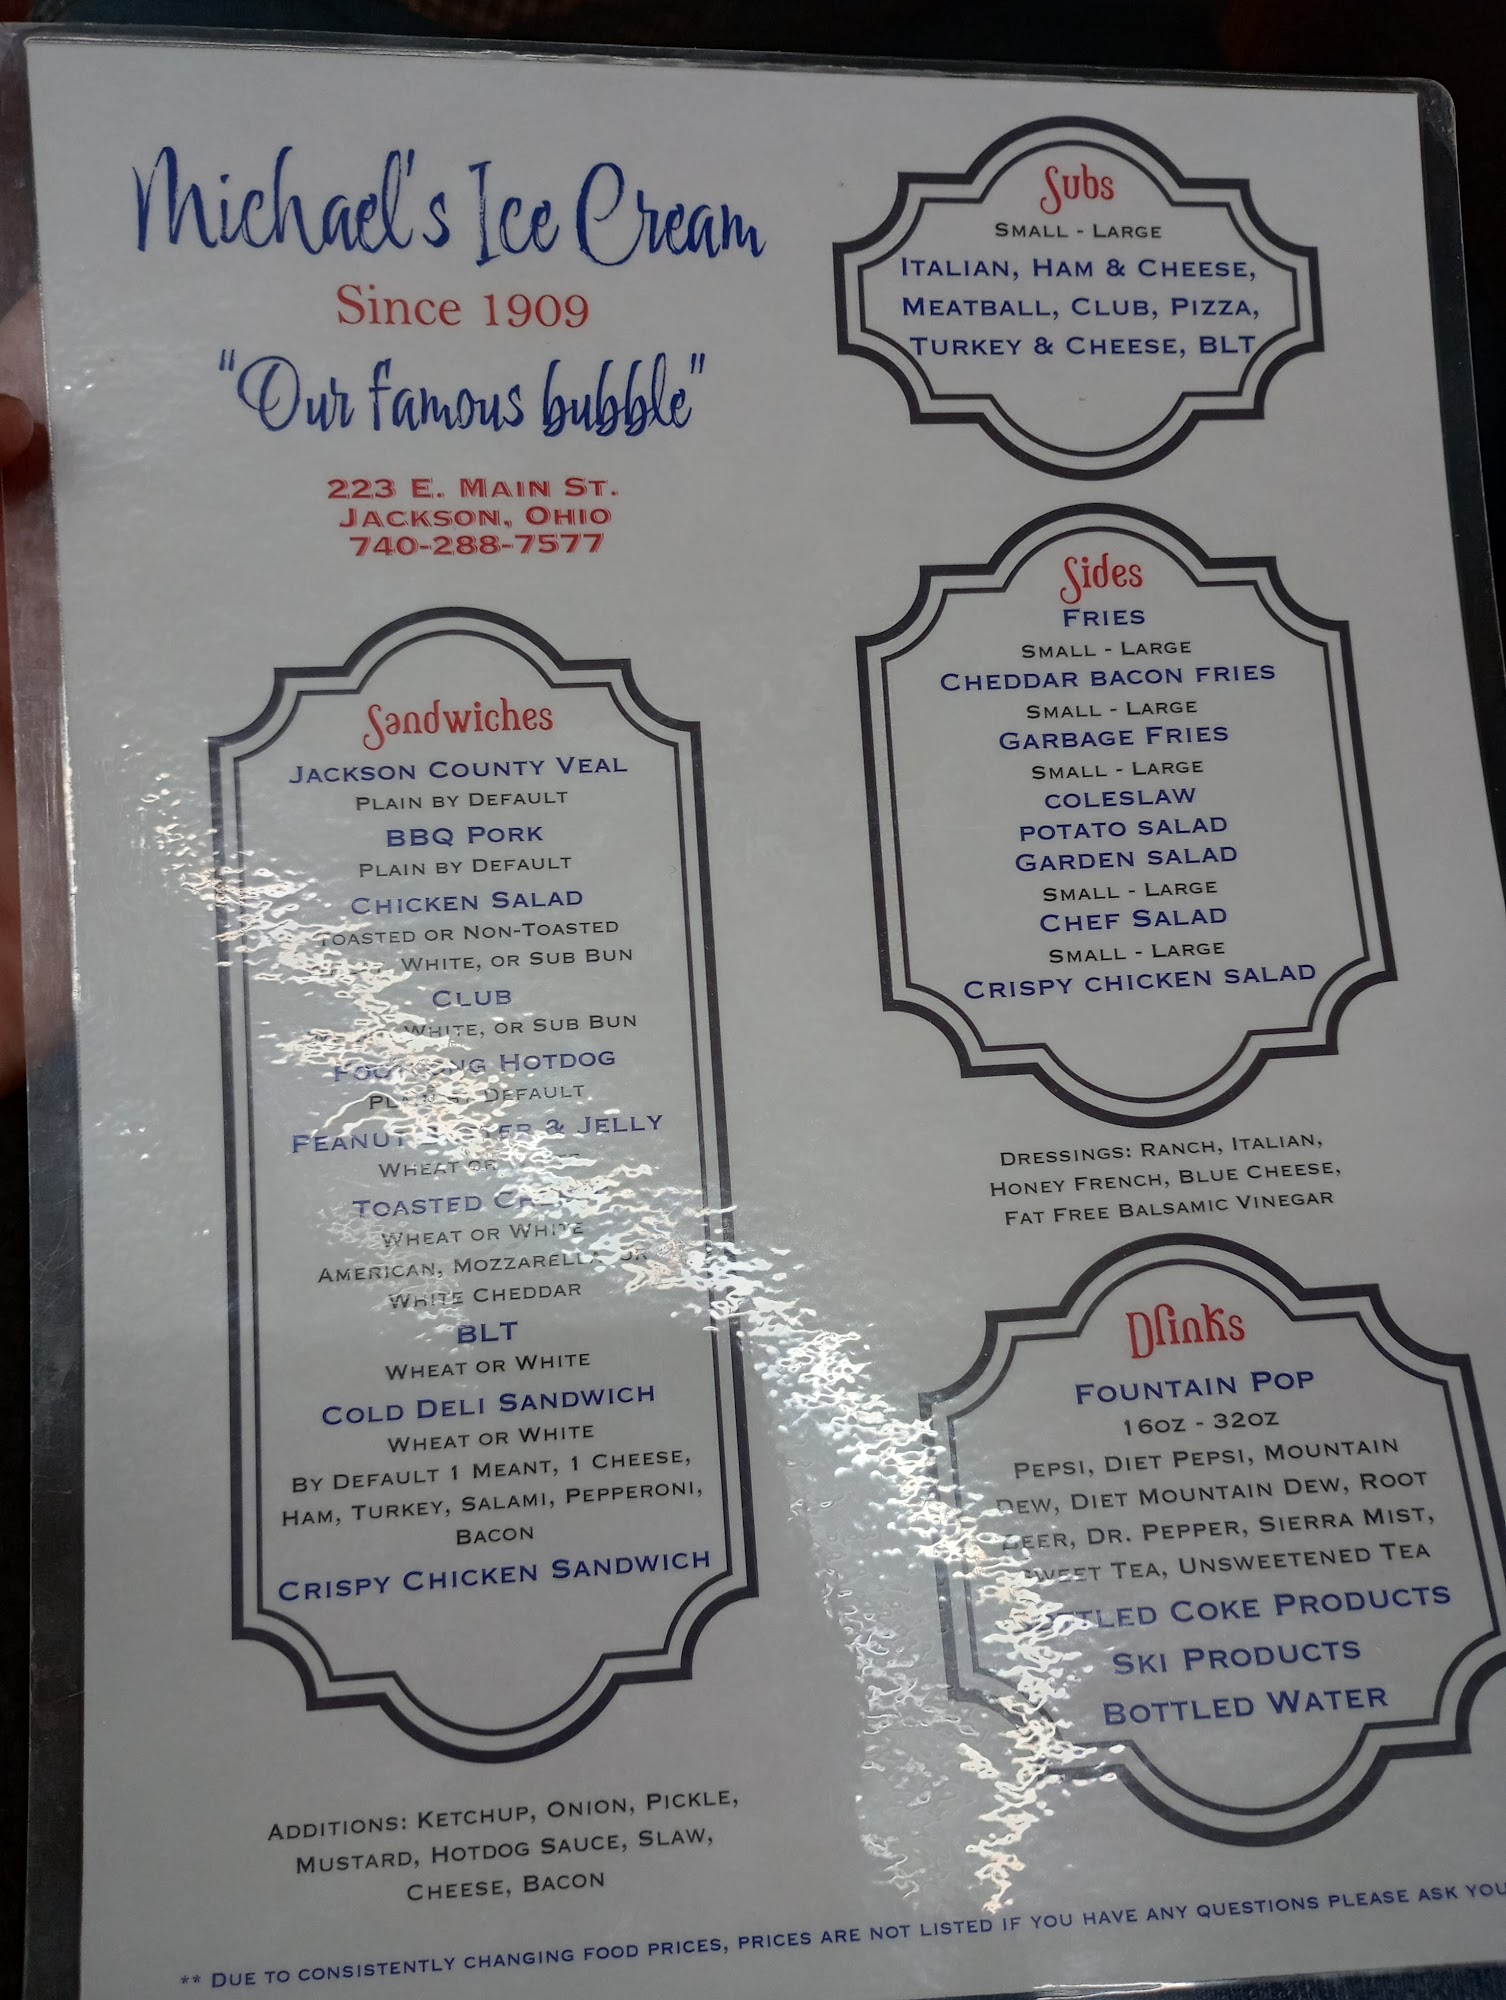 Michael's Ice Cream
Since 1909
"Our famous bubble"
223 E. Main St.
Jackson, Ohio
740-288-7577
Sandwiches
Jackson County Veal
Plain by Default
BBQ Pork
Plain by Default
Chicken Salad
Toasted or Non-Toasted
White, or Sub Bun
Club
White, or Sub Bun
Hotdog
Plain by Default
Peanut Butter & Jelly
Wheat or White
Toasted
Wheat or White
American, Mozzarella or
White Cheddar
BLT
Wheat or White
Cold Deli Sandwich
Wheat or White
By Default 1 Meant, 1 Cheese,
Ham, Turkey, Salami, Pepperoni,
Bacon
Crispy Chicken Sandwich
Additions: Ketchup, Onion, Pickle,
Mustard, Hotdog Sauce, Slaw,
Cheese, Bacon
Subs
Small - Large
Italian, Ham & Cheese,
Meatball, Club, Pizza,
Turkey & Cheese, BLT
Sides
Fries
Small - Large
Cheddar bacon fries
Small - Large
Garbage Fries
Small - Large
coleslaw
potato salad
Garden salad
Small - Large
Chef Salad
Small - Large
Crispy chicken salad
Dressings: Ranch, Italian,
Honey French, Blue Cheese,
Fat Free Balsamic Vinegar
Drinks
Fountain Pop
16oz - 32oz
Pepsi, Diet Pepsi, Mountain
Dew, Diet Mountain Dew, Root
Beer, Dr. Pepper, Sierra Mist,
Sweet Tea, Unsweetened Tea
Bottled Coke Products
Ski Products
Bottled Water
** Due to consistently changing food prices, prices are not listed if you have any questions please ask you